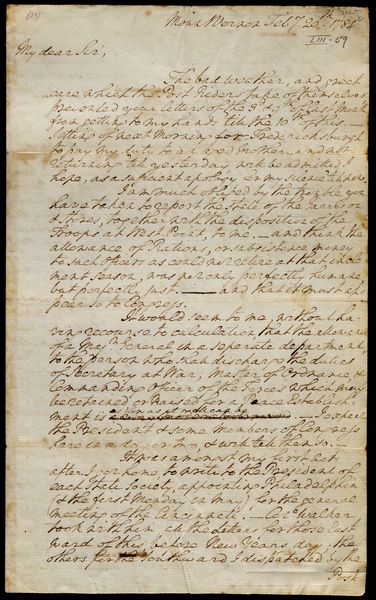 Mount Vernon Feby 20th 1784
LIII-59
My dear Sir,
The bad weather, and great
care which the Post Riders take of themselves
prevented your letters of the 3d & 9th of last Month
from getting to my hands till the 10th of this.—
Setting off next Morning for Fredericksburgh
to pay my duty to an aged Mother, and not
returning till yesterday will be admitted I
hope, as a sufficient apology for my silence
I am much obliged by the trouble you
have taken to report the state of the
together with the disposition of the
Troops at West Point, to me.—and think the
allowance of Ration, or subsistence money
to such Officers as could not retire at that incle-
ment season, was not only perfectly humane
but perfectly just.— and that it must ap-
pear so to Congress.
It would seem to me, without ha-
ving recourse to calculation that the allowance
of a Majr General in a seperate department
to the person who shall discharge the duties
of Secretary at War, Master of Ordnance, &
Commanding Officer of the Forces which may
be retained or Raised for a Peace Establish-
ment is as low as it well can be
I expect
the President & some Members of Congress
here in a day or two, & will tell them so.—
It was amongst my first acts
after I got home, to write to the President of
each State Society, appointing Philadelphia
(& the first Monday in May) for the general
meeting of the Cincinnati.— Colo Walker
took with him all the Letters for those East-
ward of this before New Years day; the
others for the Southward I dispatched by the
Post